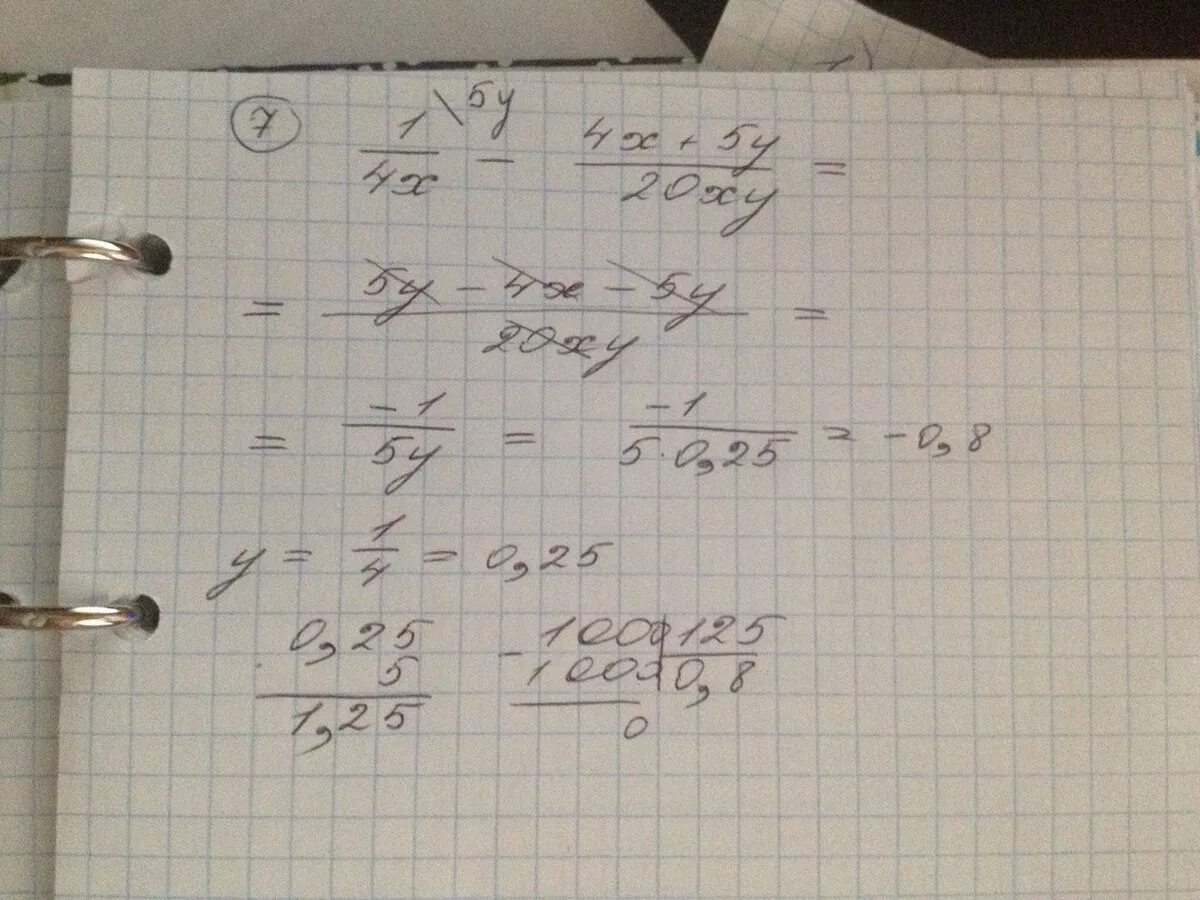 ⑦ 1/4x \5y - (4x + 5y)/20xy =
= (5y - 4x - 5y)/20xy =
= -1/5y = -1/(5·0,25) = -0,8
y = 1/4 = 0,25
0,25 -1000|125
5 1000|0,8
1,25 0